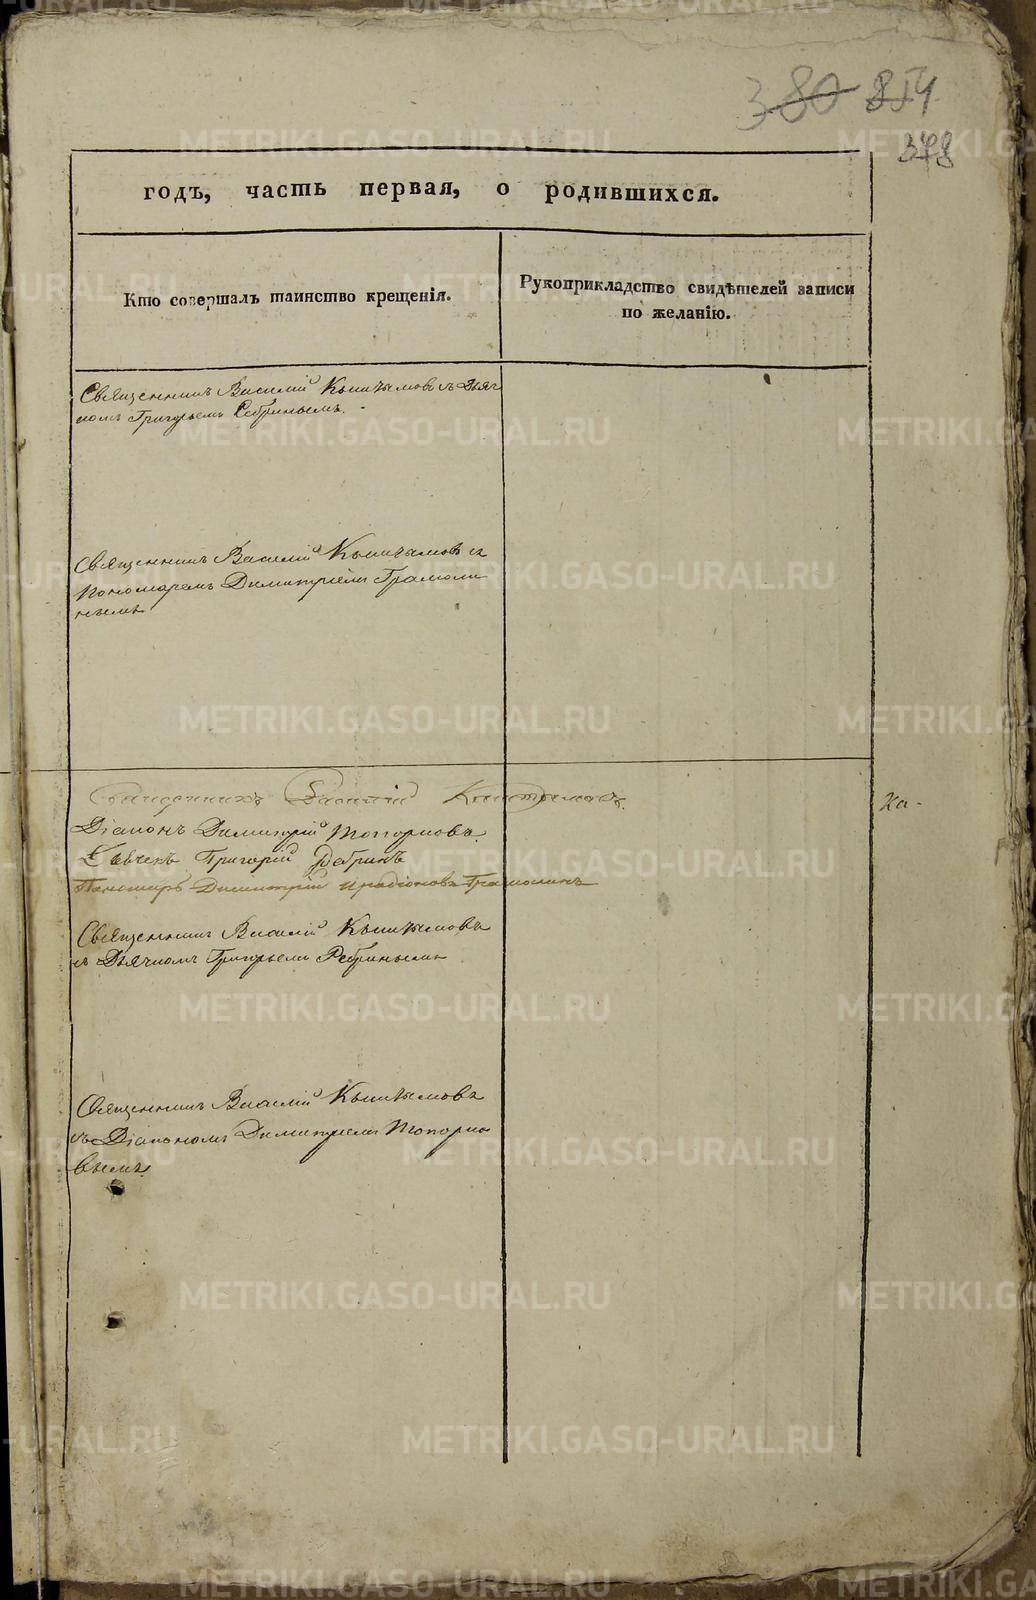 380 854
378
годъ, часть первая, о родившихся.
Кто совершалъ таинство крещенія.
Рукоприкладство свидѣтелей записи
по желанію.
Священникъ Василій Кыштымовъ съ Дьяч
комъ Григорьемъ Ребринымъ.
Священникъ Василій Кыштымовъ съ
Пономаремъ Димитріемъ Грамоли
нымъ
Священникъ Василій Кыштымовъ.
Діаконъ Димитрій Топорковъ
Дьячекъ Григорій Ребринъ
Пономарь Димитрій Грамолинъ
Священникъ Василій Кыштымовъ
съ Дьячкомъ Григорьемъ Ребринымъ
Священникъ Василій Кыштымовъ
съ Діакономъ Димитріемъ Топорко
вымъ
Ка-
METRIKI.GASO-URAL.RU